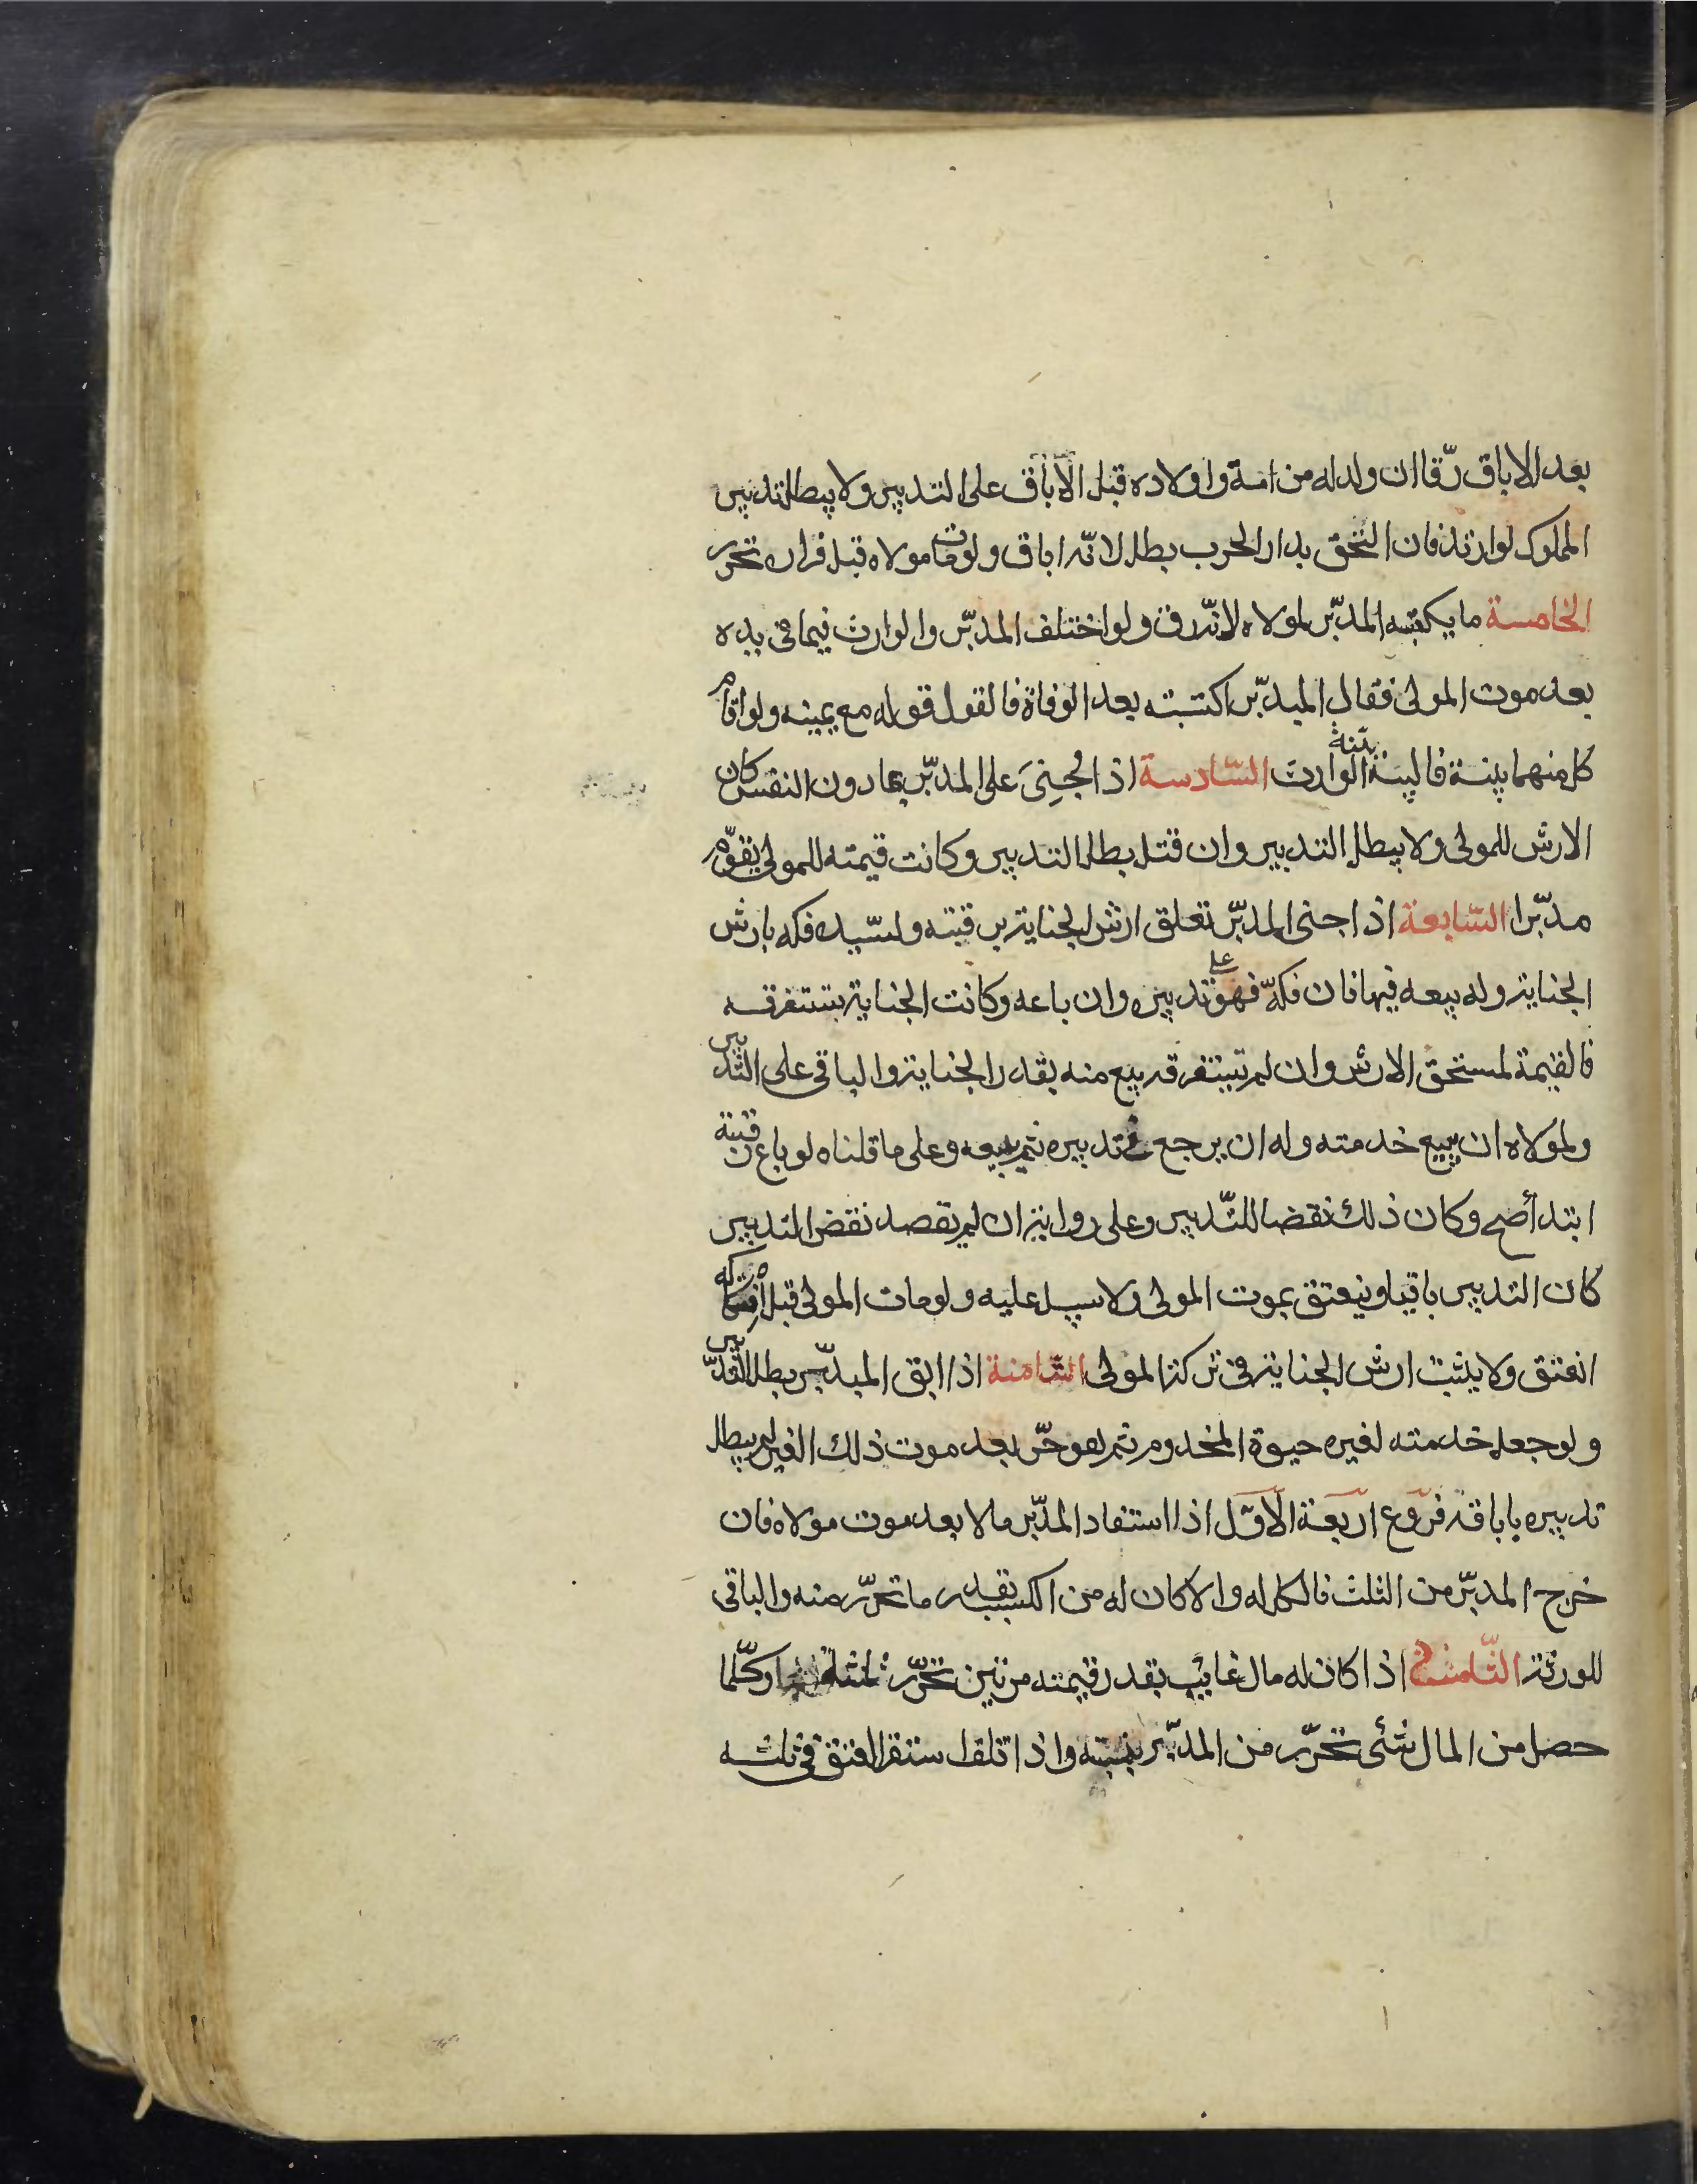 بعد الاباق رقّا ان ولد له من امة واولاده قبل الاباق على التدبير ولا يبطل تدبير
المملوك لو ارتد فان التحق بدار الحرب بطل لانّه اباق ولو مات مولاه قبل فراره تحرر
الخامسة ما يكتسبه المدبّر لمولاه لانّه رق ولو اختلف المدبّر والوارث فيما في يده
بعد موت المولى فقال المدبّر اكتسبته بعد الوفاة فالقول قوله مع يمينه ولو اقام
كل منهما بينة فالبينة بيّنة الوارث السّادسة اذا جُنِيَ على المدبّر بما دون النفس كان
الارش للمولى ولا يبطل التدبير وان قتل بطل التدبير وكانت قيمته للمولى يقوّم
مدبّرا السّابعة اذا جنى المدبّر تعلق ارش الجناية برقبته ولسّيده فكه بارش
الجناية وله بيعه فيها فان فكّه فهو على تدبيره وان باعه وكانت الجناية يستغرقه
فالقيمة لمستحق الارش وان لم تستغرقه بيع منه بقدر الجناية والباقي على التّدبير
ولمولاه ان يبيع خدمته وله ان يرجع في تدبيره ثم يبيعه وعلى ما قلناه لو باع رقبته
ابتدأ صح وكان ذلك نقضا للتّدبير وعلى رواية ان لم يقصد نقض التدبير
كان التدبير باقيا وينعتق بموت المولى ولا سبيل عليه ولو مات المولى قبل افتكاكه
انعتق ولا يثبت ارش الجناية في تركة المولى الثّامنة اذا ابق المدبّر بطل التّدبير
ولو جعل خدمته لغيره حيوة المخدوم ثم هو حّر بعد موت ذلك الغير لم يبطل
تدبيره باباقه فروع اربعة الاوّل اذا استفاد المدّبر مالا بعد موت مولاه فان
خرج المدبّر من الثلث فالكل له والا كان له من الكسب بقدر ما تحرّر منه والباقي
للورثة الثّامنة اذا كان له مال غايب بقدر قيمته مرتين تحرّر ثلثه وكلّما
حصل من المال شئى تحرّر من المدبّر بنسبته واذا تلف استقر العتق في ثلثه